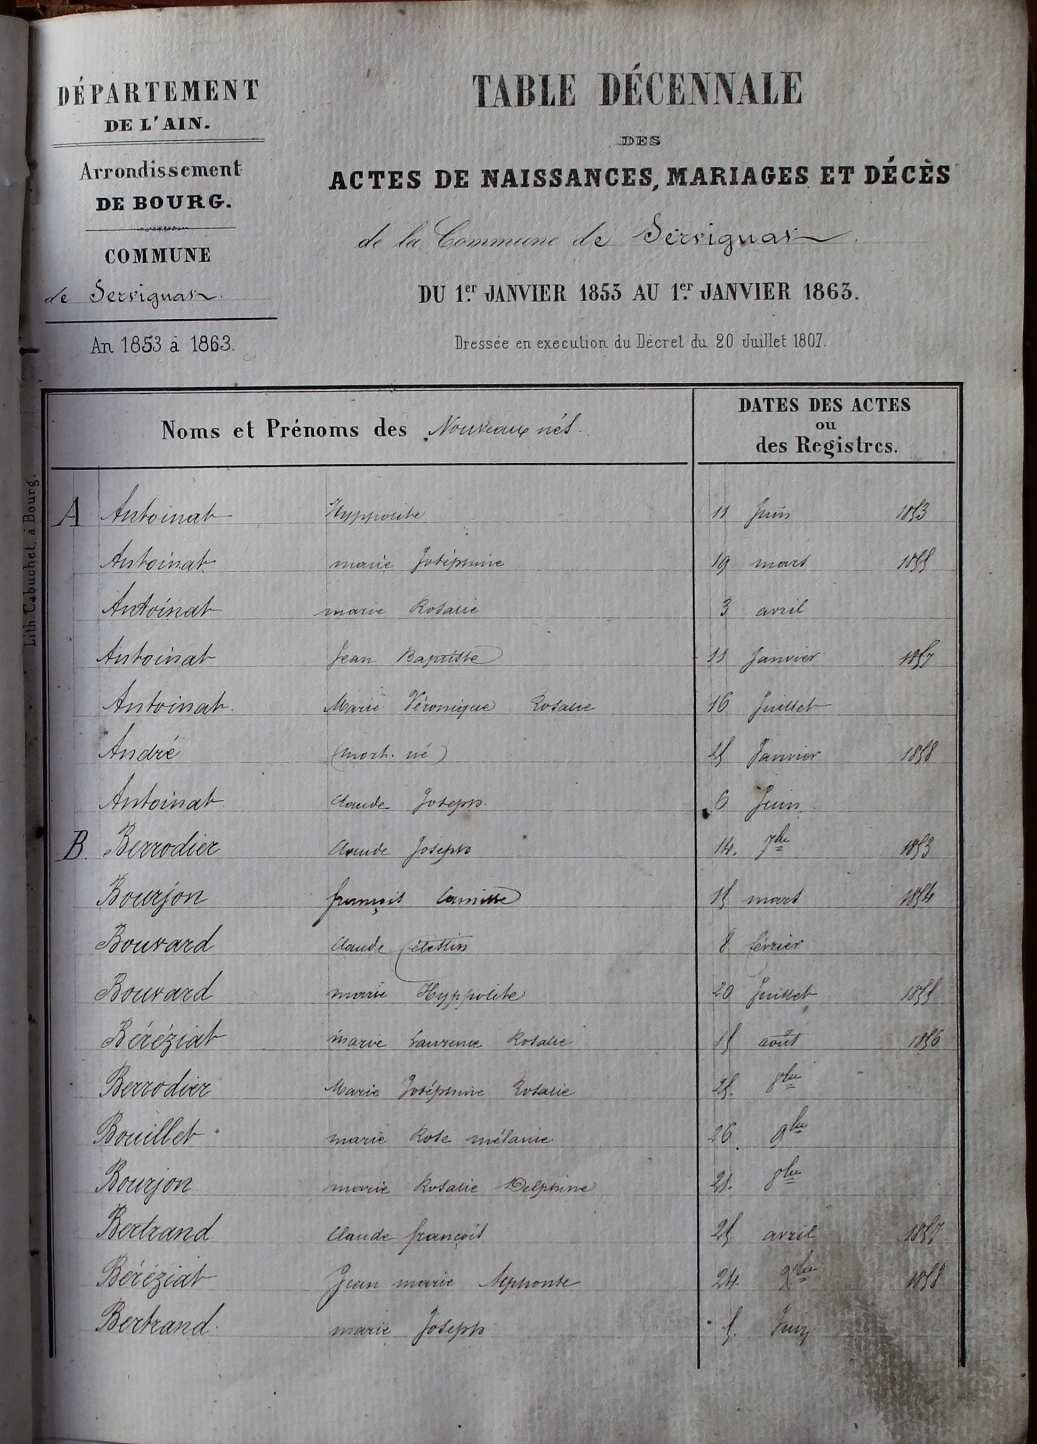 DÉPARTEMENT
DE L'AIN.
Arrondissement
DE BOURG.
COMMUNE
de Servignat
An 1853 à 1863.
TABLE DÉCENNALE
DES
ACTES DE NAISSANCES, MARIAGES ET DÉCÈS
de la Commune de Servignat.
DU 1er JANVIER 1853 AU 1er JANVIER 1863.
Dressée en exécution du Décret du 20 Juillet 1807.
Lith. Cabuchet, à Bourg.
Noms et Prénoms des Nouveaux nés.
DATES DES ACTES
ou
des Registres.
A Antoinat Hyppolite 11 Juin 1853
Antoinat marie Joséphine 19 mars 1855
Antoinat marie Rosalie 3 avril
Antoinat Jean Baptiste 11 Janvier 1857
Antoinat Marie Véronique Rosalie 16 Juillet
André (mort né) 25 Janvier 1858
Antoinat Claude Joseph 6 Juin
B. Berrodier Claude Joseph 14. 7bre 1853
Bourjon françois Camille 15 mars 1854
Bouvard Claude Célestin 8 février
Bouvard marie Hyppolite 20 Juillet 1855
Béréziat marie Laurence Rosalie 15 août 1856
Berrodier Marie Joséphine Rosalie 25. 8bre
Bouillet marie Rose mélanie 26. 9bre
Bourjon marie Rosalie Delphine 21. 8bre
Bertrand Claude françois 25 avril 1857
Béréziat Jean marie Alphonse 24. 1858
Bertrand marie Joseph 5. Juin